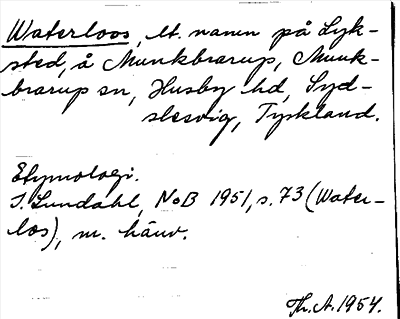 Waterloos, lt. namn på Lyk-
sted, å Munkbrarup, Munk-
brarup sn, Husby hd, Syd-
slesvig, Tyskland.
Etymologi.
I. Lundahl, NoB 1951, s. 73 (Water-
loos), m. hänv.
Th. A. 1954.